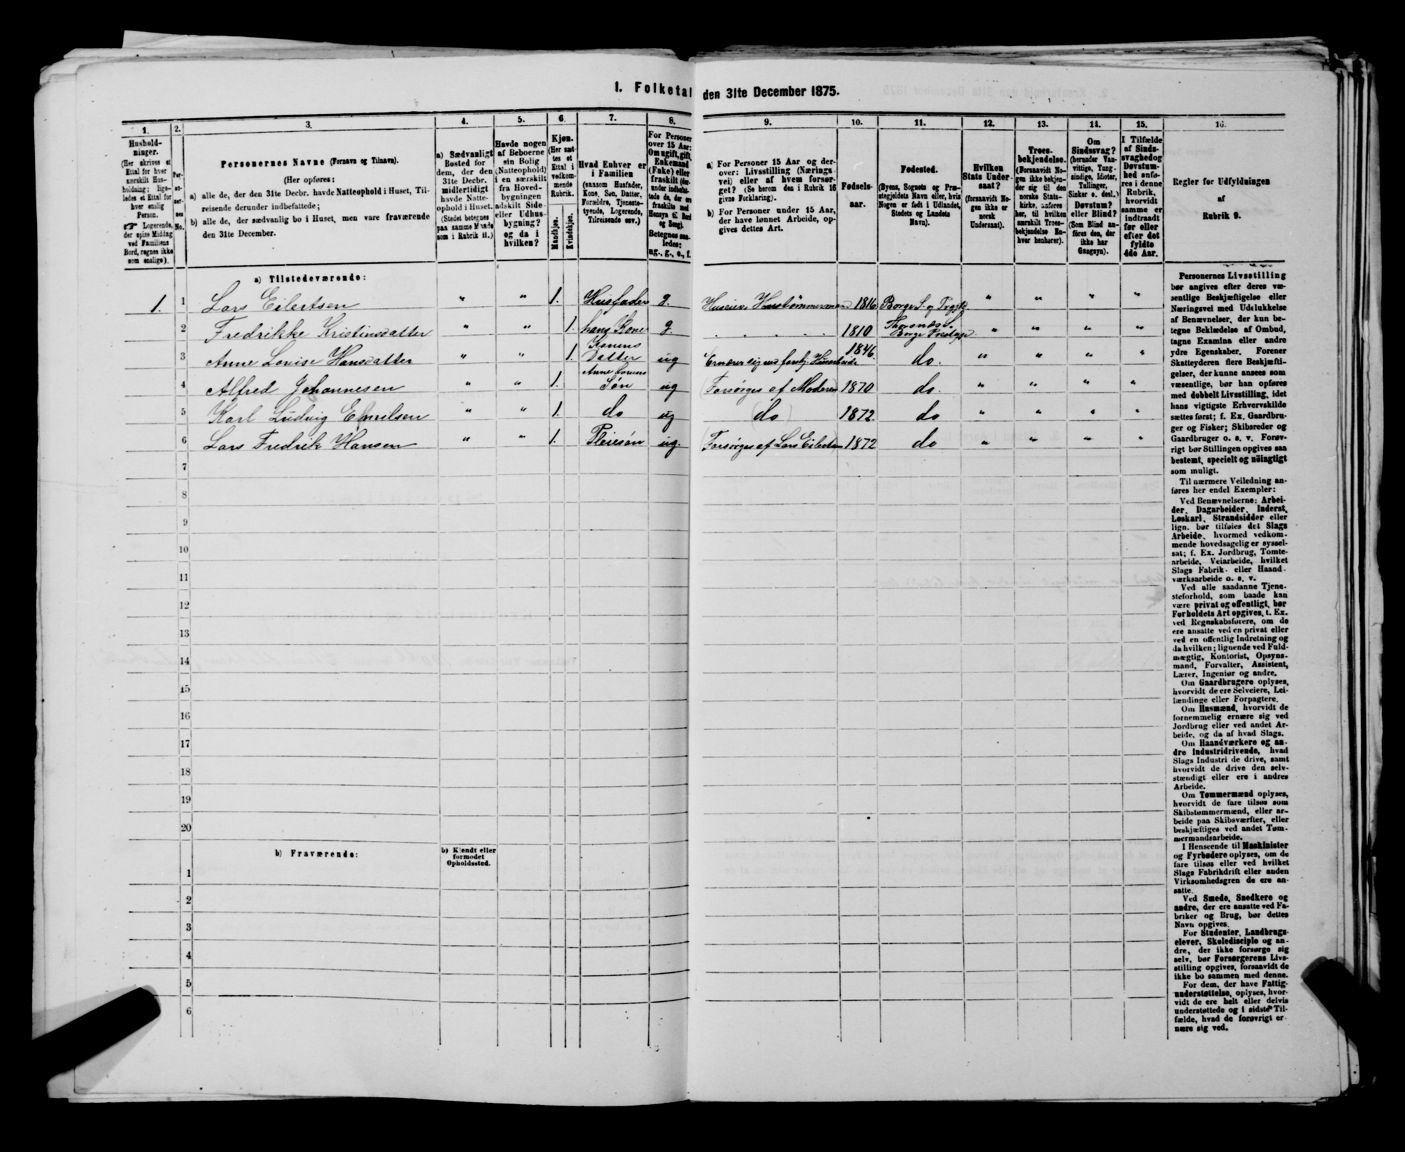 1. Folketal den 31te December 1875.
1.
2.
3.
4.
5.
6.
7.
8.
9.
10.
11.
12.
13.
14.
15.
16.
Hushold-
ninger.
(Her skrives et
Ettal for hver
særskilt Hus-
holdning; lige-
ledes et Ettal for
hver enslig
Person.
☞ Logerende,
der spise Middag
ved Familiens
Bord, regnes ikke
som enslige).
Per-
so-
ner-
nes
No.
Personernes Navne (Fornavn og Tilnavn).
(Her opføres:
a) alle de, der den 31te Decbr. havde Natteophold i Huset, Til-
reisende derunder indbefattede;
b) alle de, der sædvanlig bo i Huset, men vare fraværende
den 31te December.
a) Sædvanligt
Bosted for
dem, der den
31te Decbr.
midlertidigt
havde Natte-
ophold i Huset.
(Stedet betegnes
paa samme Maade
som i Rubrik 11.)
Havde nogen
af Beboerne
sin Bolig
(Natteophold)
i en særskilt
fra Hoved-
bygningen
adskilt Side-
eller Udhus-
bygning?
og da i
hvilken?
Kjøn.
(Her sæt-
tes et
Ettal i
vedkom-
mende
Rubrik.
Mandkjøn.
Kvindekjøn.
Hvad Enhver er
i Familien
(saasom Husfader,
Kone, Søn, Datter,
Forældre, Tjeneste-
tyende, Logerende,
Tilreisende osv.)
For Personer
over 15 Aar:
Om ugift, gift,
Enkemand
(Enke) eller
fraskilt
Betegnes saa-
ledes:
ug., g., e., f.
a) For Personer 15 Aar og der-
over: Livsstilling (Nærings-
vei) eller af hvem forsør-
get? (Se herom den i Rubrik 16
givne Forklaring).
b) For Personer under 15 Aar,
der have lønnet Arbeide, op-
gives dettes Art.
Fødsels-
aar.
Fødested.
(Byens, Sognets og Præ-
stegjeldets Navn eller, hvis
Nogen er født i Udlandet,
Stedets og Landets
Navn).
Hvilken
Stats Under-
saat?
(forsaavidt No-
gen ikke er
norsk
Undersaat).
Troes-
bekjendelse.
(Forsaavidt No-
gen ikke bekjen-
der sig til den
norske Stats-
kirke, anføres
her, til hvilken
særskilt Troes-
bekjendelse En-
hver henhører).
Om
Sindssvag?
(herunder Van-
vittige, Tung-
sindige, Idioter,
Tullinger,
Sinker o. desl.)
Døvstum?
eller Blind?
(Som Blind an-
føres den, der
ikke har
Gangsyn).
I Tilfælde
af Sinds-
svaghed og
Døvstum-
hed anfø-
res i denne
Rubrik,
hvorvidt
samme er
indtraadt
før eller
efter det
fyldte
4de Aar.
Regler for Udfyldningen
af
Rubrik 9.
a) Tilstedeværende:
1. 1 Lars Eilertsen " " 1. Husfader g. Huseier, Hustømmermand 1816 Borge S. og Prgjld. " " " "
2 Fredrikke Kristinsdatter " " 1. hans Kone g. . . . . 1810 " " " "
3 Anne Lovise Hansdatter " " 1. Konens Datter ug 1846 do. " " " "
4 Alfred Johannesen " " 1. Anne Lovises Søn ug Forsørges af Moderen 1870 do. " " " "
5 Karl Ludvig Emilsen " " 1. do ug (do) 1872. do " " " "
6 Lars Fredrik Hansen " " 1. Pleiesøn ug. Forsørges af Lars Eilertsen 1872 do " " " "
7
8
9
10
11
12
13
14
15
16
17
18
19
20
b) Fraværende:
b) Kjendt eller
formodet
Opholdssted.
1
2
3
4
5
6
Personernes Livsstilling
bør angives efter deres væ-
sentlige Beskjæftigelse eller
Næringsvei med Udelukkelse
af Benævnelser, der kun be-
tegne Beklædelse af Ombud,
tagne Examina eller andre
ydre Egenskaber. Forener
Skatteyderen flere Beskjæfti-
gelser, der kunne ansees som
væsentlige, bør han opføres
med dobbelt Livsstilling, idet
hans vigtigste Erhvervskilde
sættes først; f. Ex. Gaardbru-
ger og Fisker; Skibsreder og
Gaardbruger o. s. v. Forøv-
rigt bør Stillingen opgives saa
bestemt, specielt og nøiagtigt
som muligt.
Til nærmere Veiledning an-
føres her endel Exempler:
Ved Benævnelserne: Arbei-
der, Dagarbeider, Inderst,
Løskarl, Strandsidder eller
lign. bør tilføies det Slags
Arbeide, hvormed vedkom-
mende hovedsagelig er syssel-
sat; f. Ex. Jordbrug, Tomte-
arbeide, Veiarbeide, hvilket
Slags Fabrik- eller Haand-
værksarbeide o. s. v.
Ved alle saadanne Tjene-
steforhold, som baade kan
være privat og offentligt, bør
Forholdets Art opgives, f. Ex.
ved Regnskabsførere, om de
ere ansatte ved en privat eller
ved en offentlig Indretning og
da hvilken; lignende ved Fuld-
mægtig, Kontorist, Opsyns-
mand, Forvalter, Assistent,
Lærer, Ingeniør og andre.
Om Gaardbrugere oplyses,
hvorvidt de ere Selveiere, Lei-
lændinge eller Forpagtere.
Om Husmænd, hvorvidt de
fornemmelig ernære sig ved
Jordbrug eller ved andet Ar-
beide, og da af hvad Slags.
Om Haandværkere og an-
dre Industridrivende, hvad
Slags Industri de drive, samt
hvorvidt de drive den selv-
stændigt eller ere i andres
Arbeide.
Om Tømmermænd oplyses,
hvorvidt de fare tilsøs som
Skibstømmermænd, eller ar-
beide paa Skibsværfter, eller
beskjæftiges ved andet Tøm-
mermandsarbeide.
I Henseende til Maskinister
og Fyrbødere oplyses, om de
fare tilsøs eller ved hvilket
Slags Fabrikdrift eller anden
Virksomhedsgren de ere an-
satte.
Ved Smede, Snedkere og
andre, der ere ansatte ved Fa-
briker og Brug, bør dettes
Navn opgives.
For Studenter, Landbrugs-
elever, Skoledisciple og an-
dre, der ikke forsørge sig
selv, bør Forsørgerens Livs-
stilling opgives, forsaavidt de
ikke bo sammen med denne.
For dem, der have Fattig-
understøttelse, oplyses, hvor-
vidt de ere helt eller delvis
understøttede og i sidste Til-
fælde, hvad de forøvrigt er-
nære sig ved.